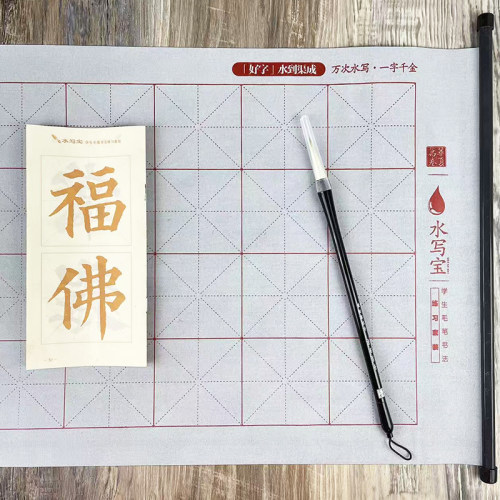 「好字」水到渠成 万次水写·一字千金
水写宝
福
佛
水写宝
学生毛笔书法
练习套装